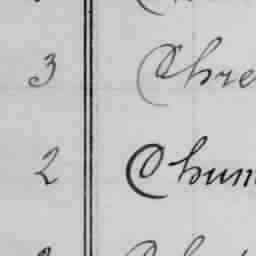 3 Chre
2 Chum